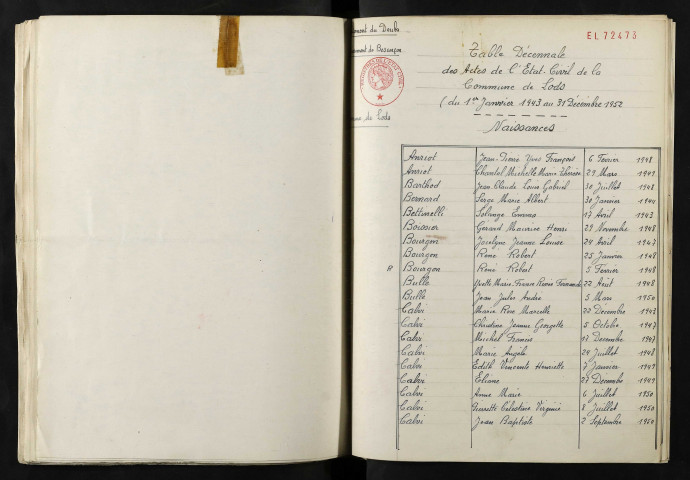 EL 72473
ment du Doubs
ment de Besançon
ne de Lods
Table Décennale
des Actes de l'Etat-Civil de la
Commune de Lods
( du 1er Janvier 1943 au 31 Décembre 1952
Naissances
Anriot Jean-Pierre Yves François 6 Fevrier 1948
Anriot Chantal Michelle Marie Thérèse 29 Mars
Barthod Jean Claude Louis Gabriel 30 Juillet 1948
Bernard Serge Marie Albert 30 Janvier
Bettinelli Solange Emma 17 Avril 1943
Boissier Gerard Maurice Henri 29 Novembre 1948
Bourgon Jocelyne Jeanne Louise 24 Avril 1947
Bourgon René Robert 25 Janvier 1948
Bourgon René Robert 5 Fevrier 1948
Bulle Yvette Marie-France Renée Fernande 22 Août 1948
Bulle Jean Jules André 5 Mars 1950
Calvi Marie Rose Marcelle 22 Décembre 1943
Calvi Christine Jeanne Georgette 5 Octobre 1947
Calvi Michel Francis 17 Decembre 1947
Calvi Marie Angèle 24 Juillet 1948
Calvi Edith Vincente Henriette 7 Janvier 1949
Calvi Eliane 27 Decembre 1949
Calvi Anne Marie 6 Juillet 1950
Calvi Pierrette Célestine Virginie 8 Juillet 1950
Calvi Jean Baptiste 2 Septembre 1950